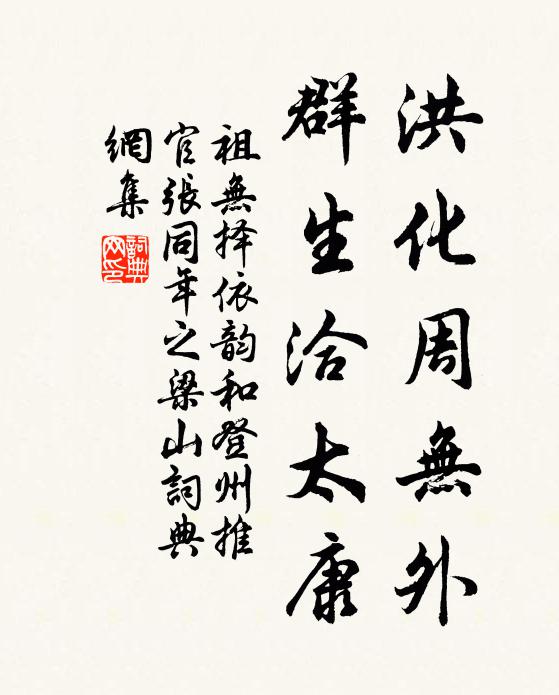 洪化周無外
群生洽太康
祖無择依韵和登州推
官張同年之梁山詞典
網集
詞典網印